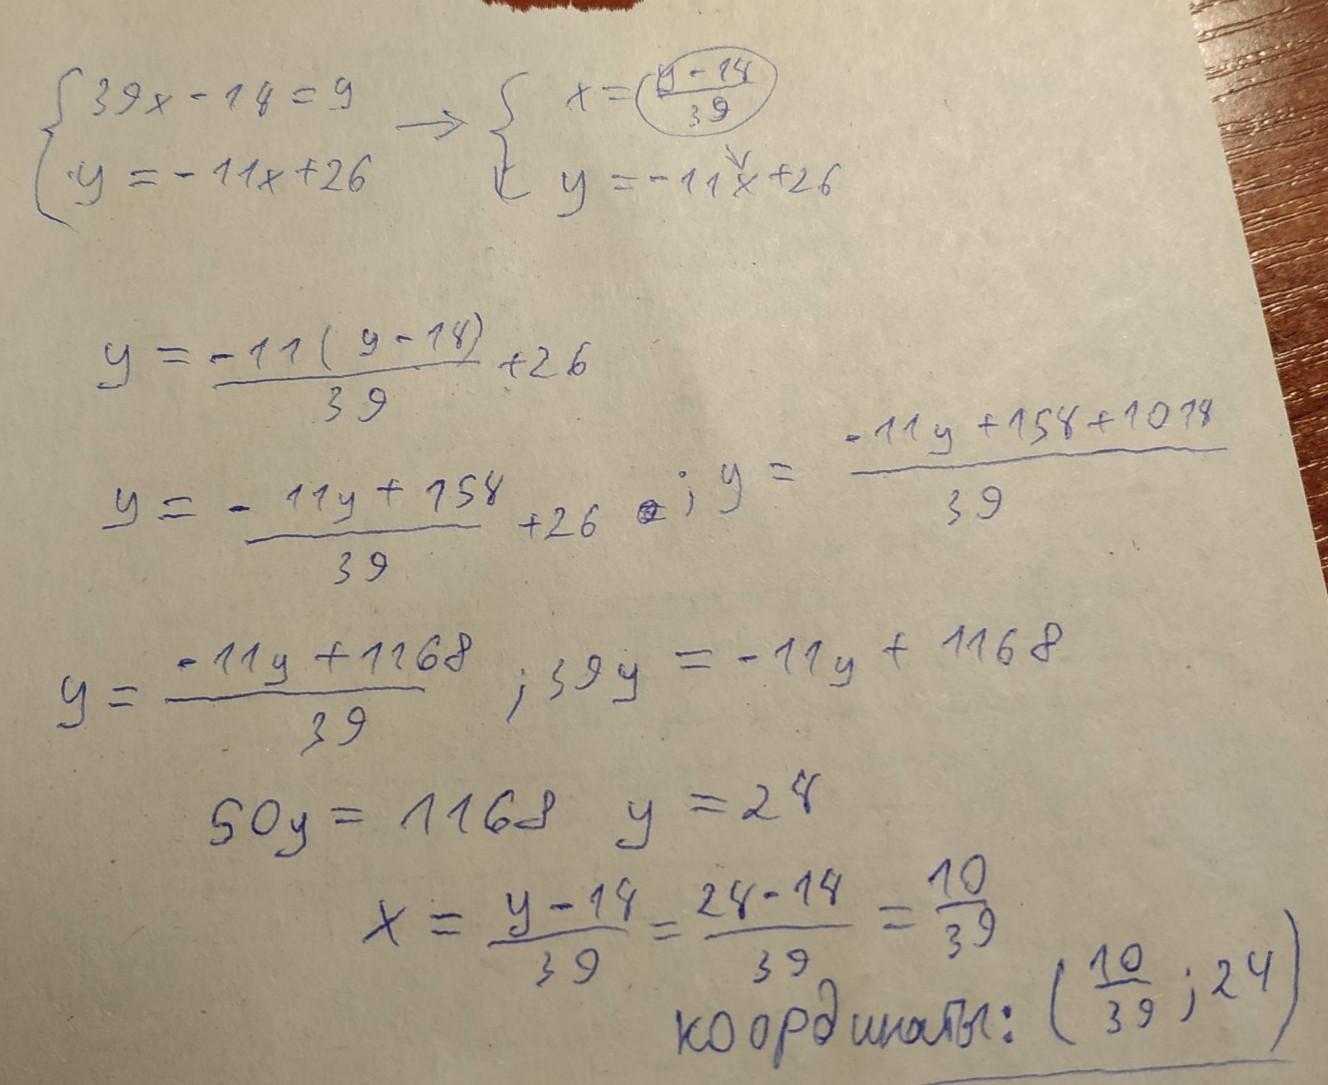 39x - 14 = y → x = \frac{y - 14}{39}
y = -11x + 26 y = -11x + 26
y = \frac{-11(y - 14)}{39} + 26
y = \frac{-11y + 154}{39} + 26 ; y = \frac{-11y + 154 + 1014}{39}
y = \frac{-11y + 1168}{39} ; 39y = -11y + 1168
50y = 1168 y = 24
x = \frac{y - 14}{39} = \frac{24 - 14}{39} = \frac{10}{39}
координаты: (\frac{10}{39} ; 24)